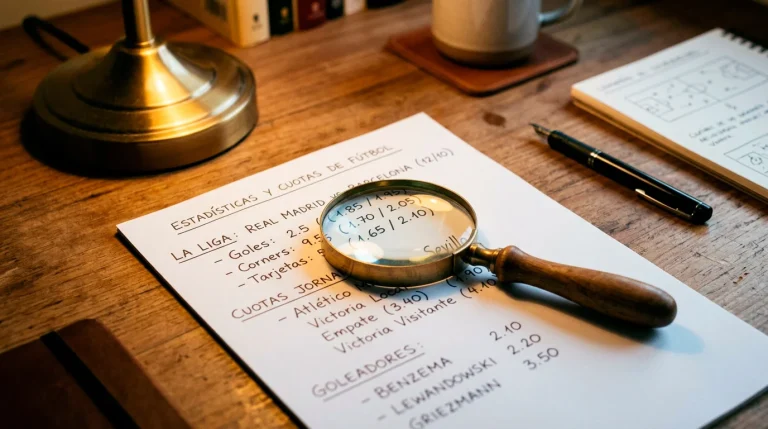 ESTADÍSTICAS Y CUOTAS DE FÚTBOL
LA LIGA: REAL MADRID VS BARCELONA (12/10)
- Goles: 2.5 (1.85 / 1.95)
- Corners: 9.5 (1.70 / 2.05)
- Tarjetas: (1.65 / 2.10)
CUOTAS JORNA
- Atlético Sevill
Victoria Local
Empate (3.40)
Victoria Visitante (4.10
GOLEADORES:
- BENZEMA 2.10
- LEWANDOWSKI 2.20
GRIEZMANN 3.50